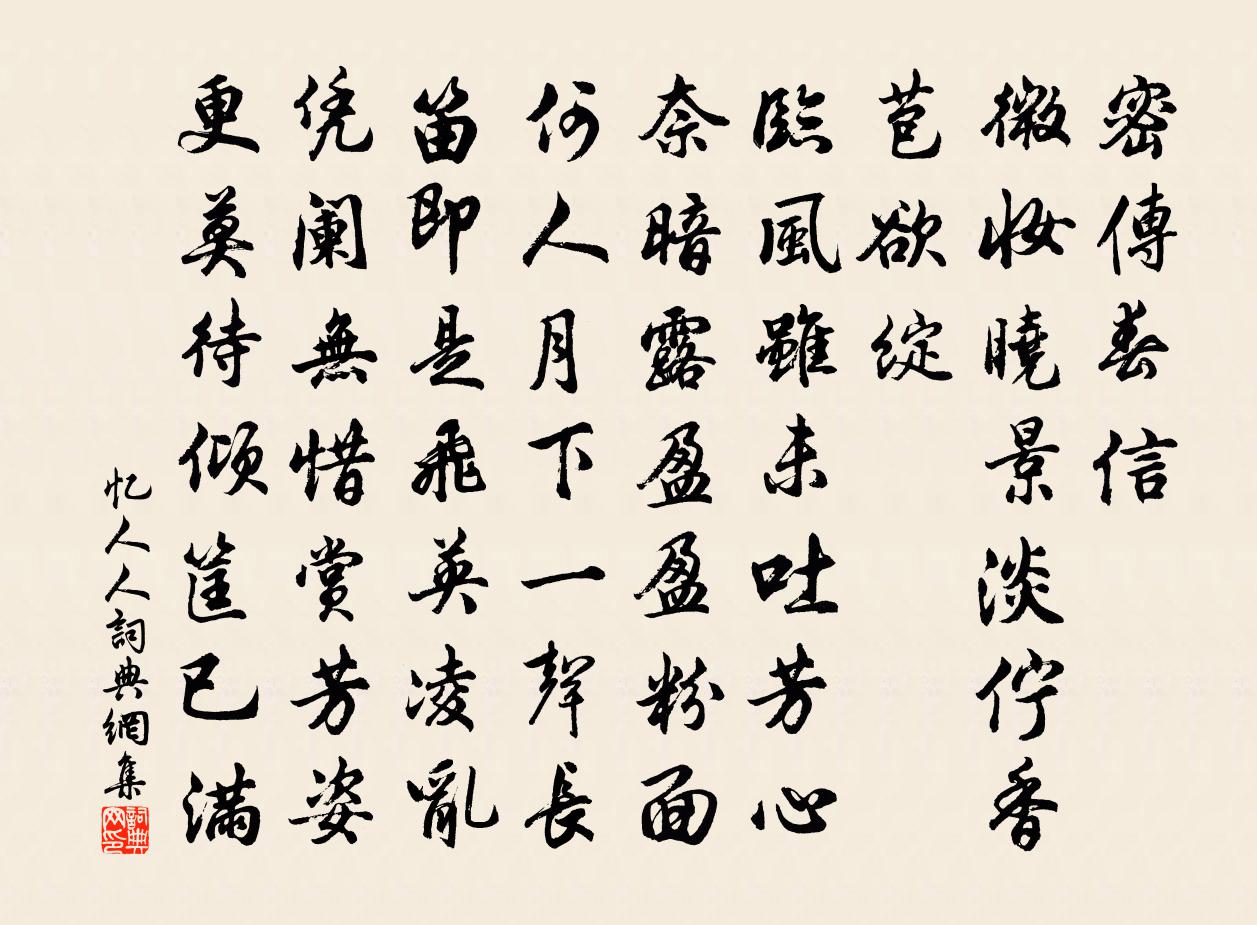 密傳春信
微妝曉景淡佇香
苞欲綻
臨風雖未吐芳心
奈暗露盈盈粉面
何人月下一聲長
笛即是飛英凌亂
凭阑無惜賞芳姿
更莫待倾筐已滿
忆人人詞典網集
詞典网印